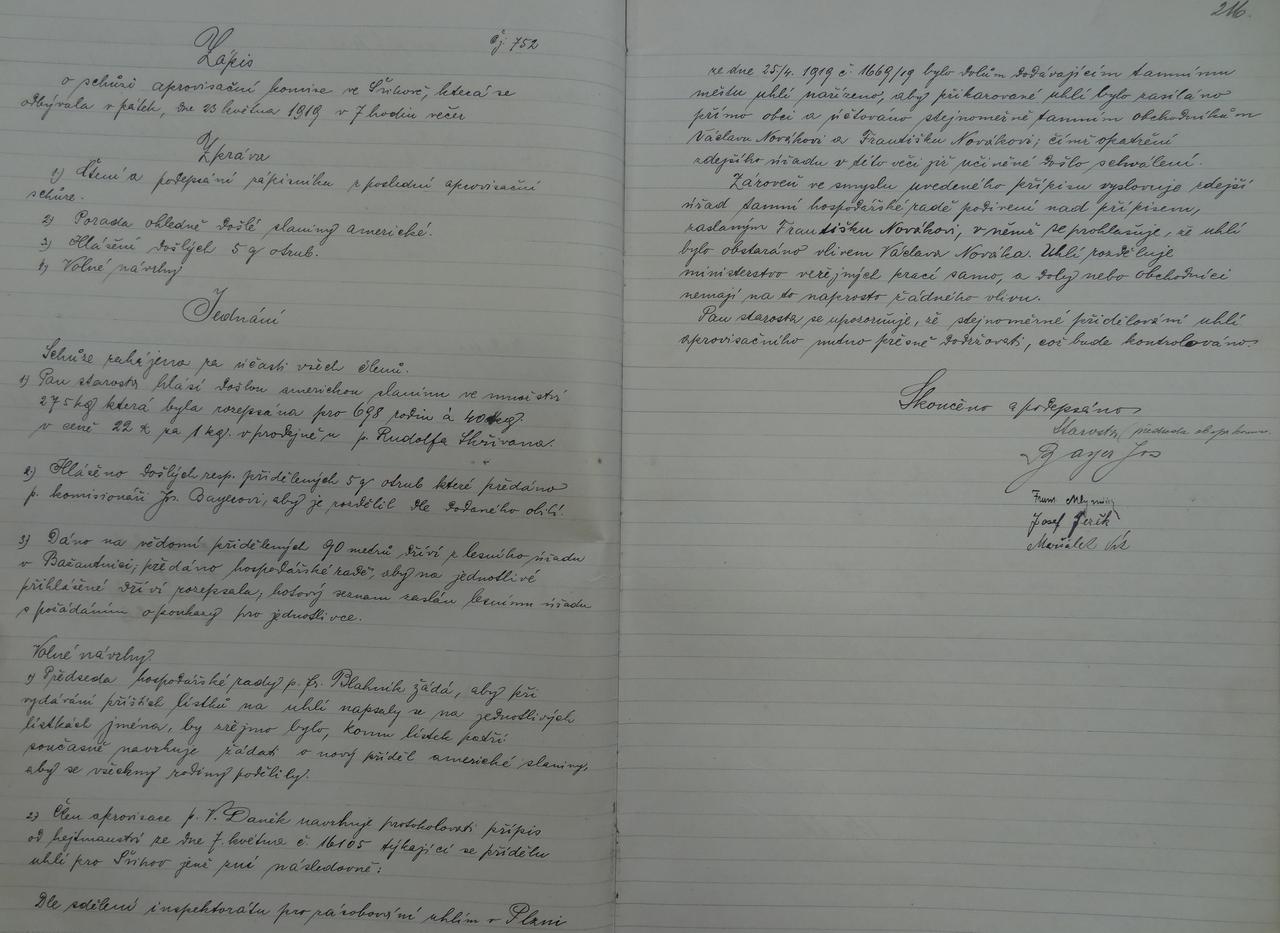 Čj. 752
Zápis
o schůzi aprovisační komise ve Švihově, která se
odbývala v pátek, dne 23 května 1919 v 7 hodin večer
Zpráva
1) Čtení a podepsání zápisníku z poslední aprovisační
schůze.
2) Porada ohledně došlé slaniny americké.
3) Hlášení došlých 5 q otrub.
4) Volné návrhy
Jednání
Schůze zahájena za účasti všech členů.
1) Pan starosta hlásí došlou americkou slaninu ve množství
275 kg která byla rozepsána pro 698 rodin á 40 kg
v ceně 22 K za 1 kg. v prodejně u p. Rudolfa Skřivana.
2) Hlášeno došlých resp. přidělených 5 q otrub které předáno
p. komisionáři Jos. Bayerovi, aby je rozdělil dle dodaného obilí.
3) Dáno na vědomí přidělených 90 metrů dříví z lesního úřadu
v Bažantnici; předáno hospodářské radě, aby na jednotlivé
přihlášené dříví rozepsala; hotový seznam zaslán lesnímu úřadu
s požádáním o poukazy pro jednotlivce.
Volné návrhy.
1) Předseda hospodářské rady p. Fr. Blahník žádá, aby při
vydávání příštích lístků na uhlí napsaly se na jednotlivých
lístkách jména, by zřejmo bylo, komu lístek patří
současně navrhuje žádati o nový příděl americké slaniny,
aby se všechny rodiny podělily.
2) Člen aprovisace p. V. Daněk navrhuje protokolovati přípis
od hejtmanství ze dne 7. května č. 16105 týkající se přídělu
uhlí pro Švihov jenž zní následovně:
Dle sdělení inspektorátu pro zásobování uhlím v Plzni
216.
ze dne 25/4. 1919 č. 1669/19 bylo dolům dodávajícím tamnímu
městu uhlí nařízeno, aby přikazované uhlí bylo zasíláno
přímo obci a účtováno stejnoměrně tamním obchodníkům
Václavu Novákovi a Františku Novákovi; čímž opatření
zdejšího úřadu v této věci již učiněné došlo schválení.
Zároveň ve smyslu uvedeného přípisu vyslovuje zdejší
úřad tamní hospodářské radě podivení nad přípisem,
zaslaným Františku Novákovi, v němž se prohlašuje, že uhlí
bylo obstaráno vlivem Václava Nováka. Uhlí rozděluje
ministerstvo veřejných prací samo, a doly nebo obchodníci
nemají na to naprosto žádného vlivu.
Pan starosta se upozorňuje, že stejnoměrné přidělování uhlí
aprovisačního nutno přesně dodržovati, což bude kontrolováno.
Skončeno a podepsáno
Starosta předseda
Bayer Jos
Josef Jeřík